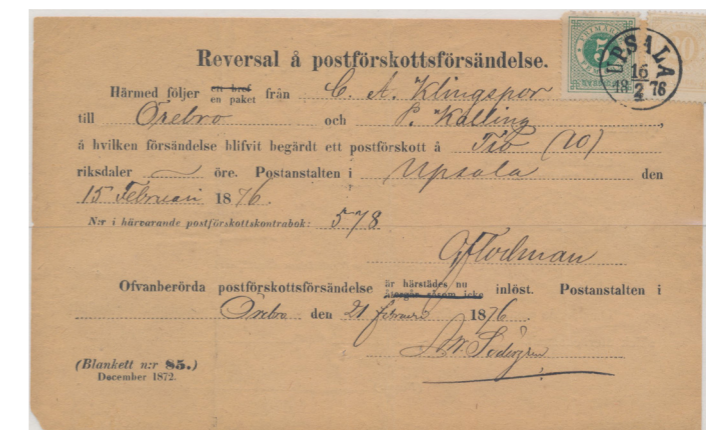 Reversal å postförskottsförsändelse.
5
UPSALA
16
18 2 76
Härmed följer en bref en paket från C. A. Klingspor
till Örebro och P. Kalling,
å hvilken försändelse blifvit begärdt ett postförskott å Tio (10)
riksdaler — öre. Postanstalten i Upsala den
15 Februari 1876.
N:r i härvarande postförskottskontrabok: 578
Ofvanberörda postförskottsförsändelse är härstädes nu återgår såsom icke inlöst. Postanstalten i
Örebro den 21 februari 1876
(Blankett n:r 85.)
December 1872.